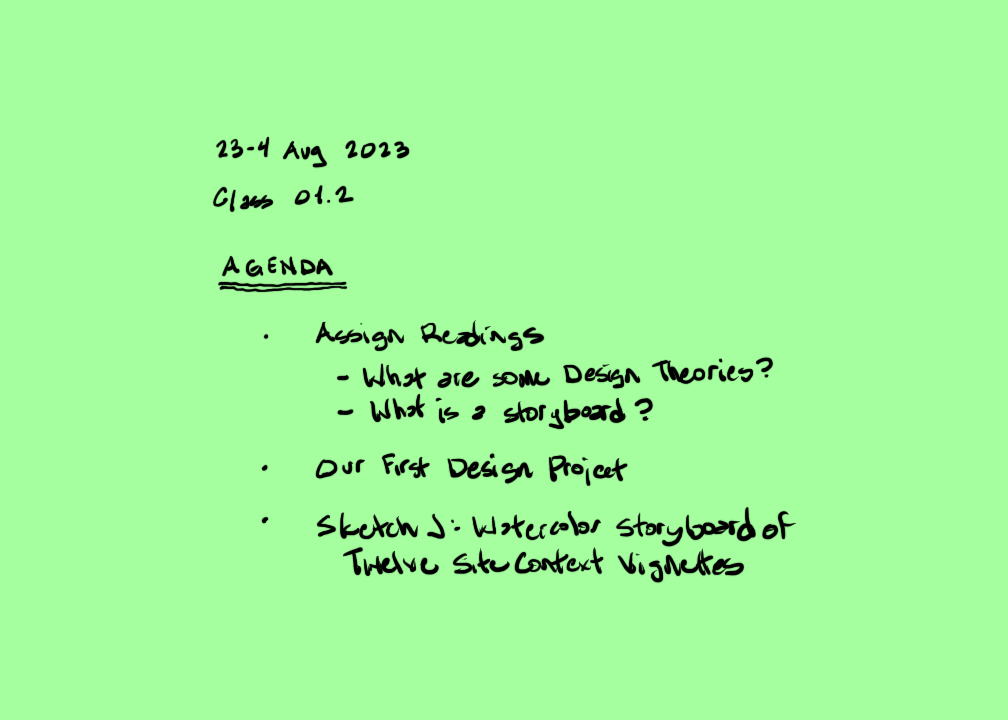 23-4 Aug 2023
Class 01.2
AGENDA
· Assign Readings
- What are some Design Theories?
- What is a storyboard?
· Our First Design Project
· Sketch J: Watercolor Storyboard of
Twelve Site Context Vignettes